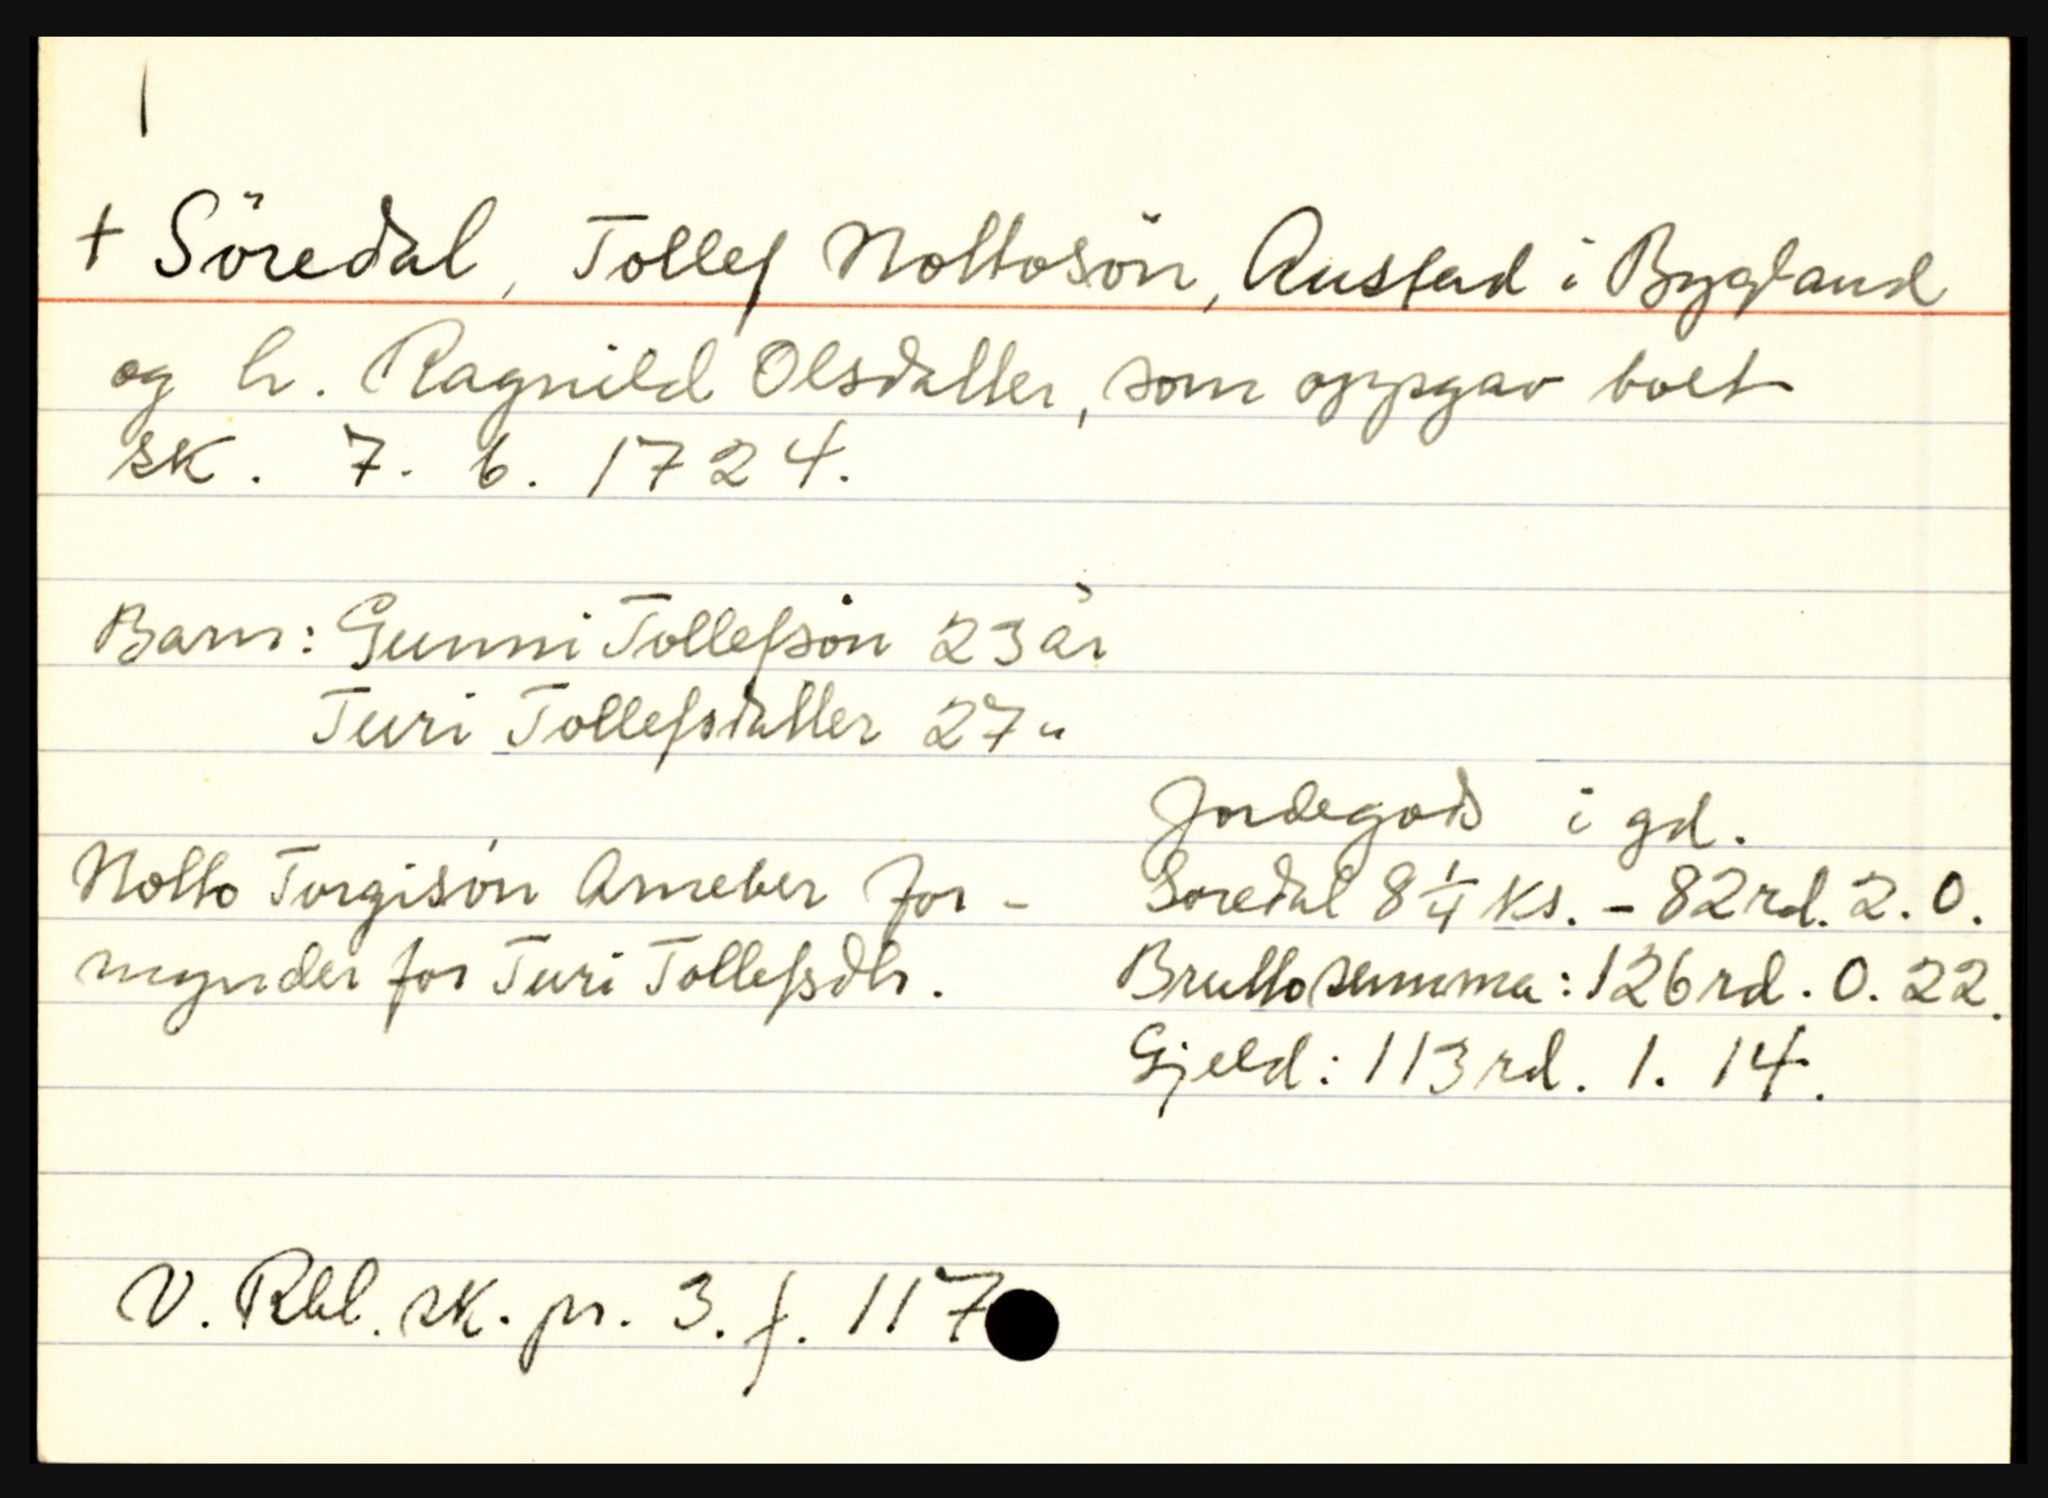 + Söredal, Tollef Noltosön, Austad i Bygland
og h. Ragnild Olsdatter, som oppgav boet
sk. 7. 6. 1724.
Barn: Gunni Tollefsön 23 år
Turi Tollefsdatter 27 "
Nolto Torgisön Arneber for-
mynder for Turi Tollefsdtr.
Jordegods i gd.
Soredal 8 1/4 ks. - 82 rd. 2. 0.
Bruttosumma: 126 rd. 0. 22.
Gjeld: 113 rd. 1. 14.
V. Rbl. sk. pr. 3. f. 117